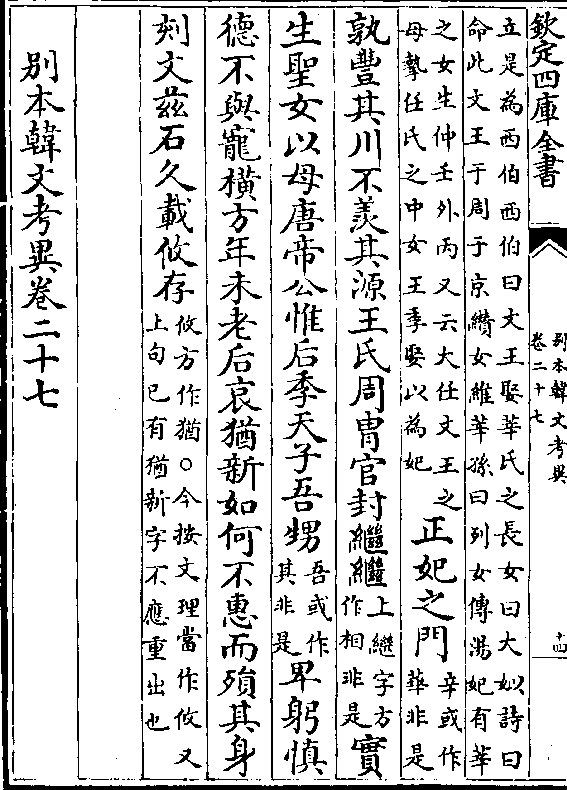 欽定四庫全書
別本韓文考異
卷二十七
十四
立是為西伯西伯曰文王娶莘氏之長女曰大姒詩曰
命此文王于周于京纘女維莘孫曰列女傳湯妃有莘
之女生仲壬外丙又云大任文王之
母摯任氏之中女王季娶以為妃
正妃之門
辛或作
莘非是
孰豐其川不羨其源王氏周胄官封繼繼
上繼字方
作相非是
實
生聖女以母唐帝公惟后季天子吾甥
吾或作
其非是
卑躬慎
德不與寵橫方年未老后哀猶新如何不惠而殞其身
刻文茲石久載攸存
攸方作猶○今按文理當作攸又
上句已有猶新字不應重出也
別本韓文考異卷二十七